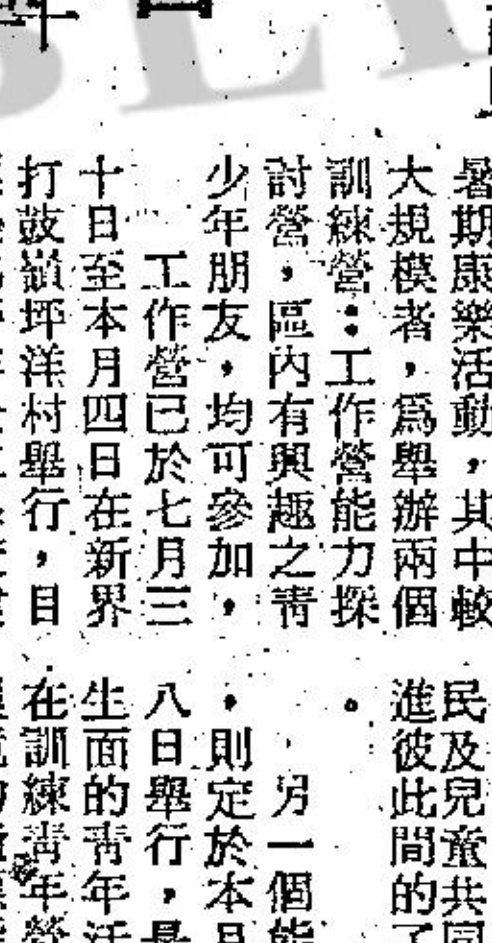 暑期康樂活動，其中較
大規模者，爲舉辦兩個
訓練營：工作營能力探
討營，區內有興趣之靑
少年朋友，均可參加，
工作營已於七月三
十日至本月四日在新界
打鼓嶺坪洋村舉行，目
民及兒童共同
進彼此間的了
。
另一個能
，則定於本月
八日舉行，是
生面的靑年活
在訓練靑年營